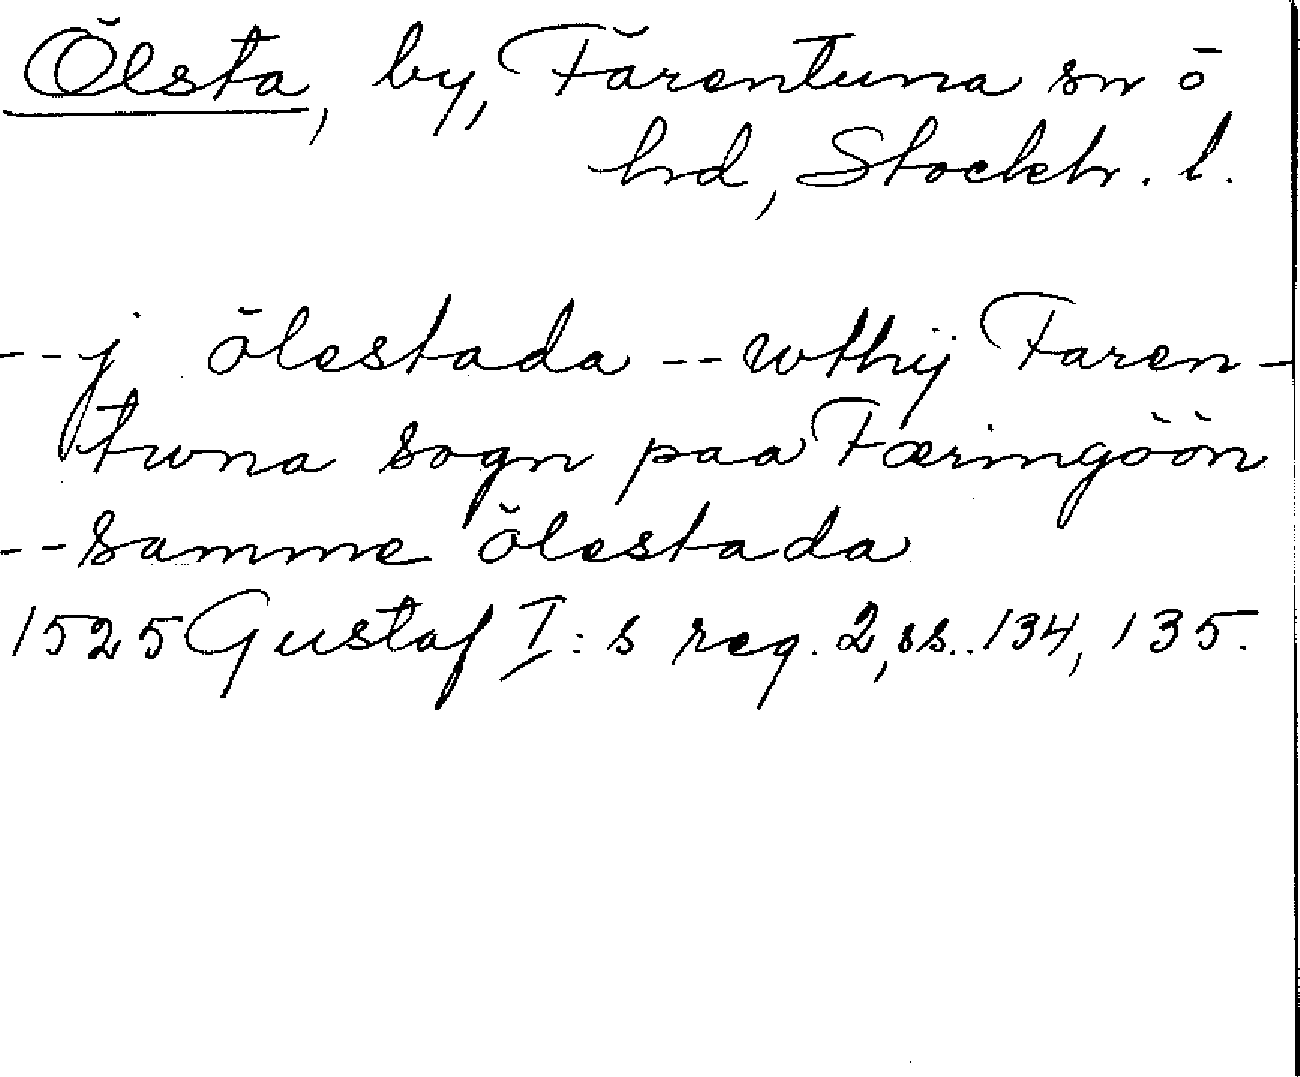 Ölsta, by, Färentuna sn o
hd, Stockh. l.
-- j ölestada -- wthij Faren-
twna sogn paa Færingöön
-- samme ölestada
1525 Gustaf I:s reg. 2, ss. 134, 135.